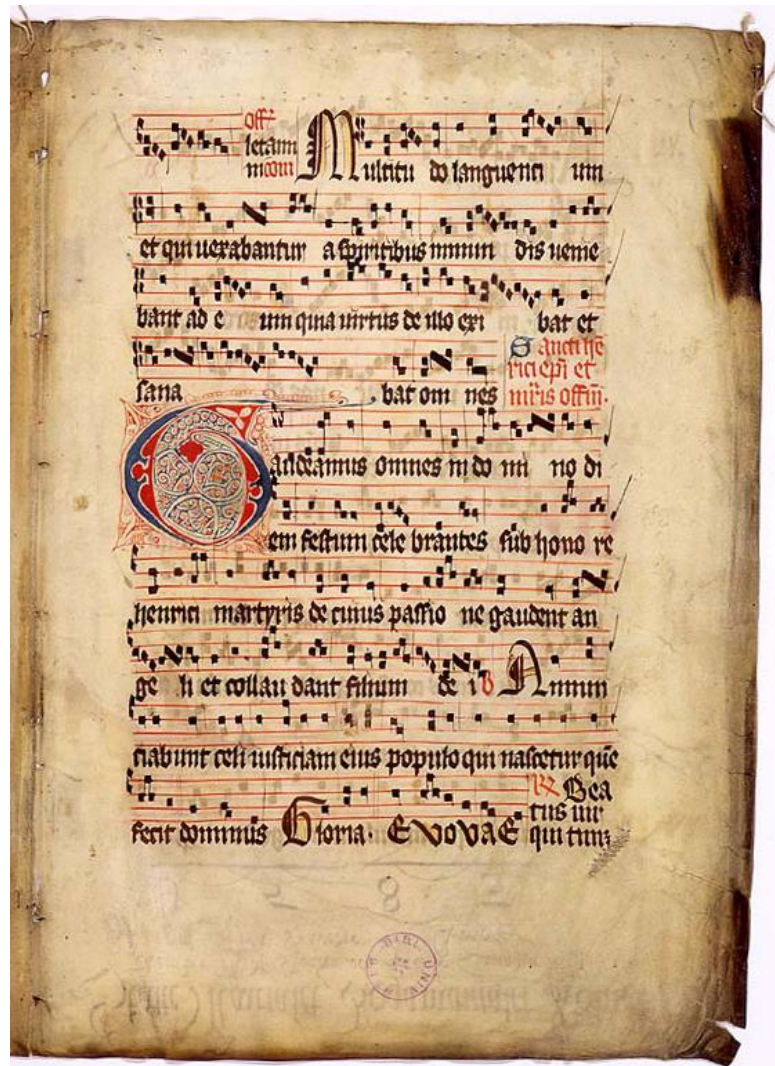 Off̄
letami
ni com Multitu do languenti um
et qui uexabantur a spiritibus inmun dis uenie
bant ad e um quia uirtus de illo exi bat et
sana bat om nes
Sancti he
rici ep̄i et
mr̄is offm̄.
Gaudeamus omnes in do mi no di
em festum cele brantes sub hono re
henrici martyris de cuius passio ne gaudent an
ge li et collau dant filium de i V Annun
ciabunt celi iusticiam eius populo qui nascetur que
fecit dominus Gloria. EVOVAE
Bea
tus uir
qui tim